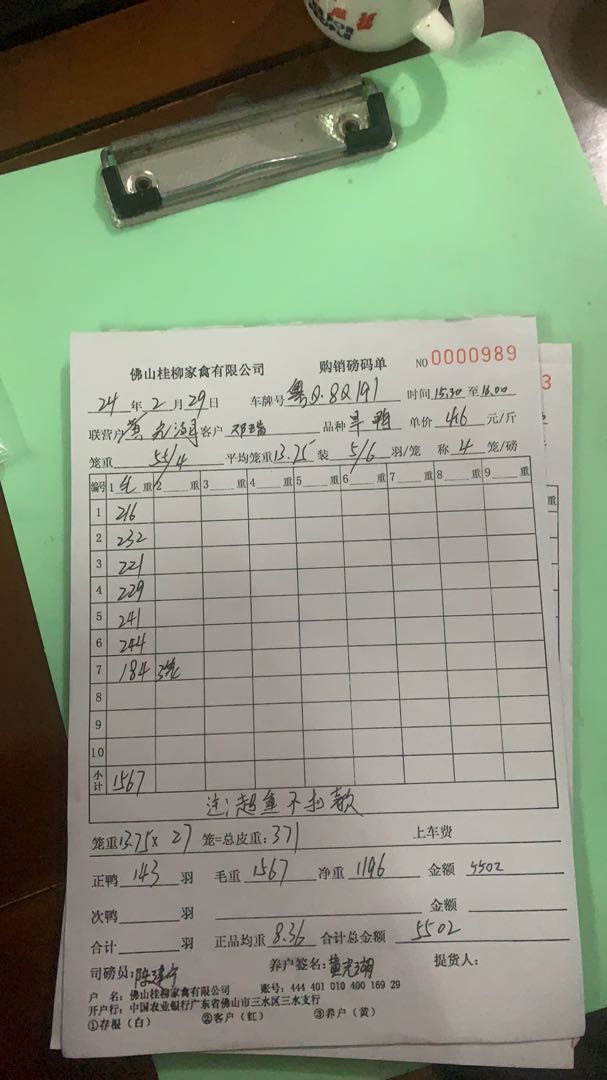 佛山桂柳家禽有限公司 购销磅码单 NO 0000989
24 年 2 月 29 日 车牌号 粤Q.8Q191 时间 15.30 至 16.00
联营户 黄 客户 邓 品种 旱鸭 单价 4.6 元/斤
笼重 55/4 平均笼重 13.75 装 5/6 羽/笼 称 4 笼/磅
编号 1 毛 重 2 重 3 重 4 重 5 重 6 重 7 重 8 重 9 重
1 216
2 232
3 221
4 229
5 241
6 244
7 184 3笼
8
9
10
小计 1567
注:超重不扣款
笼重 13.75 x 27 笼=总皮重: 371 上车费
正鸭 143 羽 毛重 1567 净重 1196 金额 5502
次鸭 羽 金额
合计 羽 正品均重 8.36 合计总金额 5502
司磅员: 陈 养户签名: 黄 提货人:
户 名: 佛山桂柳家禽有限公司 账号: 444 401 010 400 169 29
开户行: 中国农业银行广东省佛山市三水区三水支行
①存根(白) ②客户(红) ③养户(黄)
3